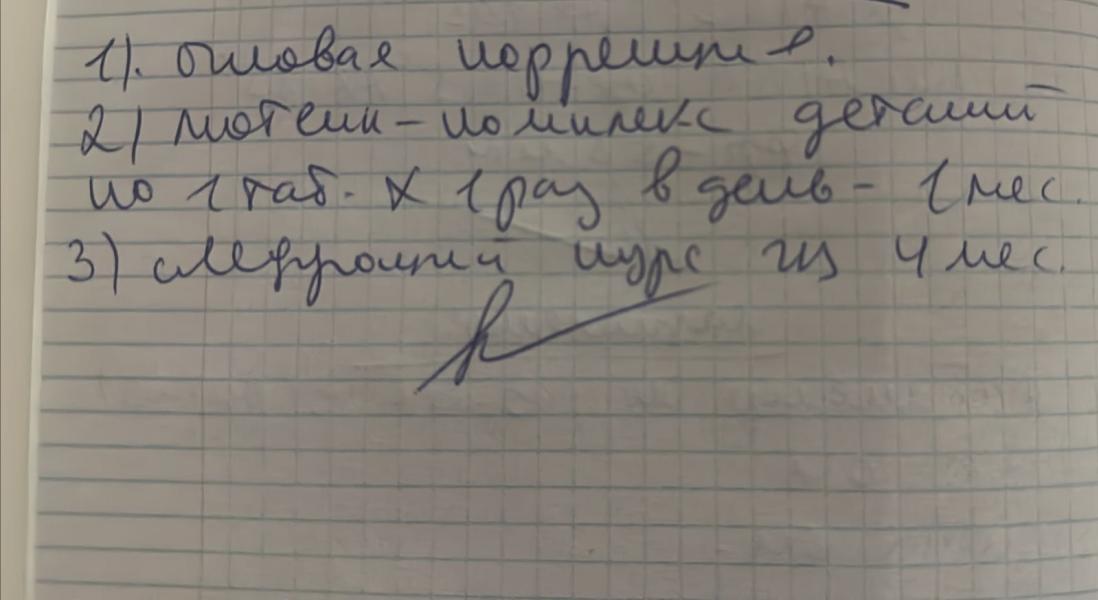 1). очковая коррекция.
2) лютеин-комплекс детский
по 1 таб. х 1 раз в день - 1 мес.
3) следующий курс чз 4 мес.